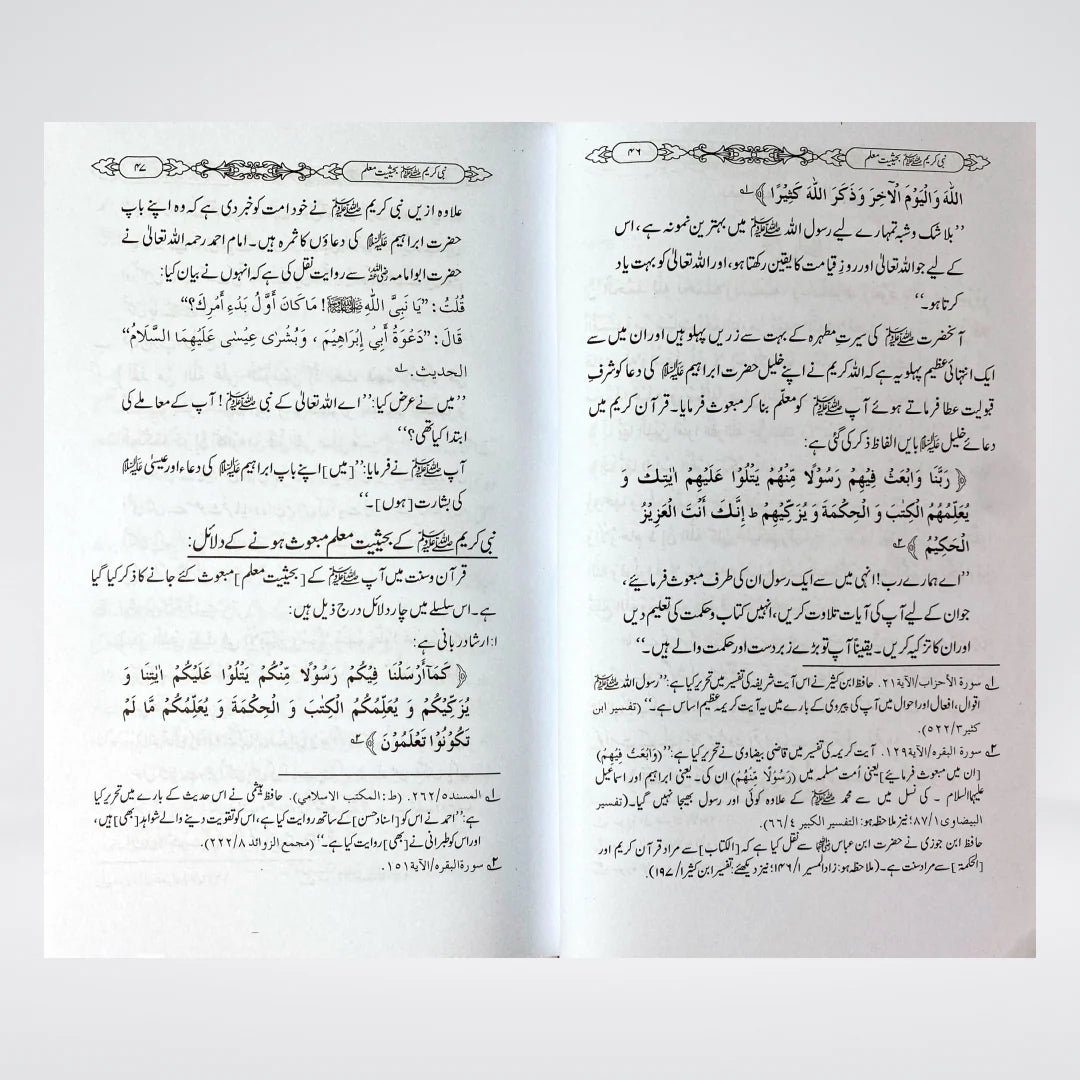 نبی کریم ﷺ بحیثیت معلم
۴۶
اللّٰهَ وَالْيَوْمَ الْاٰخِرَ وَذَكَرَ اللّٰهَ كَثِيْرًا ﴾ ۱
’’بلا شک و شبہ تمہارے لیے رسول اللہ ﷺ میں بہترین نمونہ ہے، اس
کے لیے جو اللہ تعالیٰ اور روزِ قیامت کا یقین رکھتا ہو، اور اللہ تعالیٰ کو بہت یاد
کرتا ہو۔‘‘
آنحضرت ﷺ کی سیرتِ مطہرہ کے بہت سے زریں پہلو ہیں اور ان میں سے
ایک انتہائی عظیم پہلو یہ ہے کہ اللہ کریم نے اپنے خلیل حضرت ابراہیم علیہ السلام کی دعا کو شرفِ
قبولیت عطا فرماتے ہوئے آپ ﷺ کو معلّم بنا کر مبعوث فرمایا۔ قرآن کریم میں
دعائے خلیل علیہ السلام بایں الفاظ ذکر کی گئی ہے:
﴿ رَبَّنَا وَابْعَثْ فِيْهِمْ رَسُوْلًا مِّنْهُمْ يَتْلُوْا عَلَيْهِمْ اٰيٰتِكَ وَ
يُعَلِّمُهُمُ الْكِتٰبَ وَ الْحِكْمَةَ وَ يُزَكِّيْهِمْ ط اِنَّكَ أَنْتَ الْعَزِيْزُ
الْحَكِيْمُ ﴾ ۲
’’اے ہمارے رب! انہی میں سے ایک رسول ان کی طرف مبعوث فرمائیے،
جو ان کے لیے آپ کی آیات تلاوت کریں، انہیں کتاب و حکمت کی تعلیم دیں
اور ان کا تزکیہ کریں۔ یقیناً آپ تو بڑے زبردست اور حکمت والے ہیں۔‘‘
۱ سورة الأحزاب/الآية ۲۱۔ حافظ ابن کثیر نے اس آیت شریفہ کی تفسیر میں تحریر کیا ہے: ’’رسول اللہ ﷺ
اقوال، افعال اور احوال میں آپ کی پیروی کے بارے میں یہ آیت کریمہ عظیم اساس ہے۔‘‘ (تفسیر ابن
کثیر ۵۲۲/۳)۔
۲ سورة البقره/الآية ۱۲۹۔ آیت کریمہ کی تفسیر میں قاضی بیضاوی نے تحریر کیا ہے: ’’(وَابْعَثْ فِيْهِمْ)
[ان میں مبعوث فرمائیے] یعنی اُمت مسلمہ میں (رَسُوْلًا مِّنْهُمْ) ان کی۔ یعنی ابراہیم اور اسماعیل
علیہما السلام ۔ کی نسل میں سے محمد ﷺ کے علاوہ کوئی اور رسول بھیجا نہیں گیا۔ (تفسیر
البیضاوی ۸۷/۱؛ نیز ملاحظہ ہو: التفسير الكبير ۶۶/۴)
حافظ ابن جوزی نے حضرت ابن عباس رضی اللہ عنہما سے نقل کیا ہے کہ [الكتاب] سے مراد قرآن کریم اور
[الحكمة] سے مراد سنت ہے۔ (ملاحظہ ہو: زاد المسیر ۱۴۶/۱؛ نیز دیکھئے: تفسیر ابن کثیر ۱۹۷/۱)۔
نبی کریم ﷺ بحیثیت معلم
۴۷
علاوہ ازیں نبی کریم ﷺ نے خود امت کو خبر دی ہے کہ وہ اپنے باپ
حضرت ابراہیم علیہ السلام کی دعاؤں کا ثمرہ ہیں۔ امام احمد رحمہ اللہ تعالیٰ نے
حضرت ابو امامہ رضی اللہ عنہ سے روایت نقل کی ہے کہ انہوں نے بیان کیا:
قُلْتُ: ’’يَا نَبِىَّ اللّٰهِ ﷺ! مَا كَانَ أَوَّلُ بَدْءِ أَمْرِكَ؟‘‘
قَالَ: ’’دَعْوَةُ أَبِيْ إِبْرَاهِيْمَ ، وَبُشْرٰى عِيْسٰى عَلَيْهِمَا السَّلَامُ‘‘
الحدیث. ۱
’’میں نے عرض کیا: ’’اے اللہ تعالیٰ کے نبی ﷺ! آپ کے معاملے کی
ابتدا کیا تھی؟‘‘
آپ ﷺ نے فرمایا: ’’[میں] اپنے باپ ابراہیم علیہ السلام کی دعاء اور عیسیٰ علیہ السلام
کی بشارت [ہوں]۔‘‘
نبی کریم ﷺ کے بحیثیت معلم مبعوث ہونے کے دلائل:
قرآن و سنت میں آپ ﷺ کے [بحیثیت معلم] مبعوث کئے جانے کا ذکر کیا گیا
ہے۔ اس سلسلے میں چار دلائل درج ذیل ہیں:
۱: ارشاد ربانی ہے:
﴿ كَمَآ أَرْسَلْنَا فِيْكُمْ رَسُوْلًا مِّنْكُمْ يَتْلُوْا عَلَيْكُمْ اٰيٰتِنَا وَ
يُزَكِّيْكُمْ وَ يُعَلِّمُكُمُ الْكِتٰبَ وَ الْحِكْمَةَ وَ يُعَلِّمُكُمْ مَّا لَمْ
تَكُوْنُوْا تَعْلَمُوْنَ ﴾ ۲
۱ المسند ۲۶۲/۵. (ط: المكتب الاسلامي)۔ حافظ ہیثمی نے اس حدیث کے بارے میں تحریر کیا
ہے: ’’احمد نے اس کو [اسناد حسن] کے ساتھ روایت کیا ہے، اس کو تقویت دینے والے شواہد [بھی] ہیں،
اور اس کو طبرانی نے [بھی] روایت کیا ہے۔‘‘ (مجمع الزوائد ۲۲۲/۸)
۲ سورة البقره/الآية ۱۵۱۔